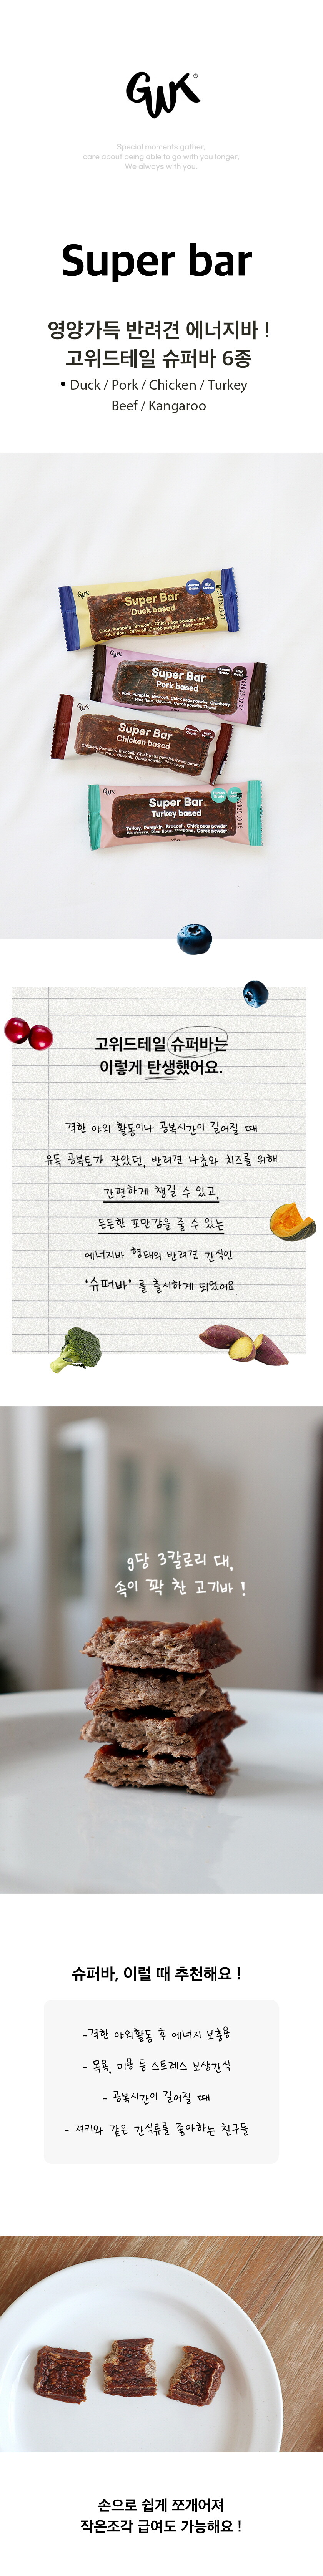 GWK®
Special moments gather,
care about being able to go with you longer,
We always with you.
Super bar
영양가득 반려견 에너지바 !
고위드테일 슈퍼바 6종
• Duck / Pork / Chicken / Turkey
Beef / Kangaroo
GWK
Super Bar
Duck based
Duck, Pumpkin, Broccoli, Chick peas powder, Apple
GWK
Super Bar
Pork based
Pork, Pumpkin, Broccoli, Chick peas powder, Cranberry
Rice flour, Olive oil, Carob powder, Thyme
GWK
Super Bar
Chicken based
GWK
Super Bar
Turkey based
Turkey, Pumpkin, Broccoli, Chick peas powder
Blueberry, Rice flour, Oregano, Carob powder
고위드테일 슈퍼바는
이렇게 탄생했어요.
격한 야외 활동이나 공복시간이 길어질 때
유독 공복토가 잦았던, 반려견 나쵸와 치즈를 위해
간편하게 챙길 수 있고,
든든한 포만감을 줄 수 있는
에너지바 형태의 반려견 간식인
'슈퍼바' 를 출시하게 되었어요.
g당 3칼로리 대,
속이 꽉 찬 고기바 !
슈퍼바, 이럴 때 추천해요 !
-격한 야외활동 후 에너지 보충용
- 목욕, 미용 등 스트레스 보상간식
- 공복시간이 길어질 때
- 져키와 같은 간식류를 좋아하는 친구들
손으로 쉽게 쪼개어져
작은조각 급여도 가능해요 !